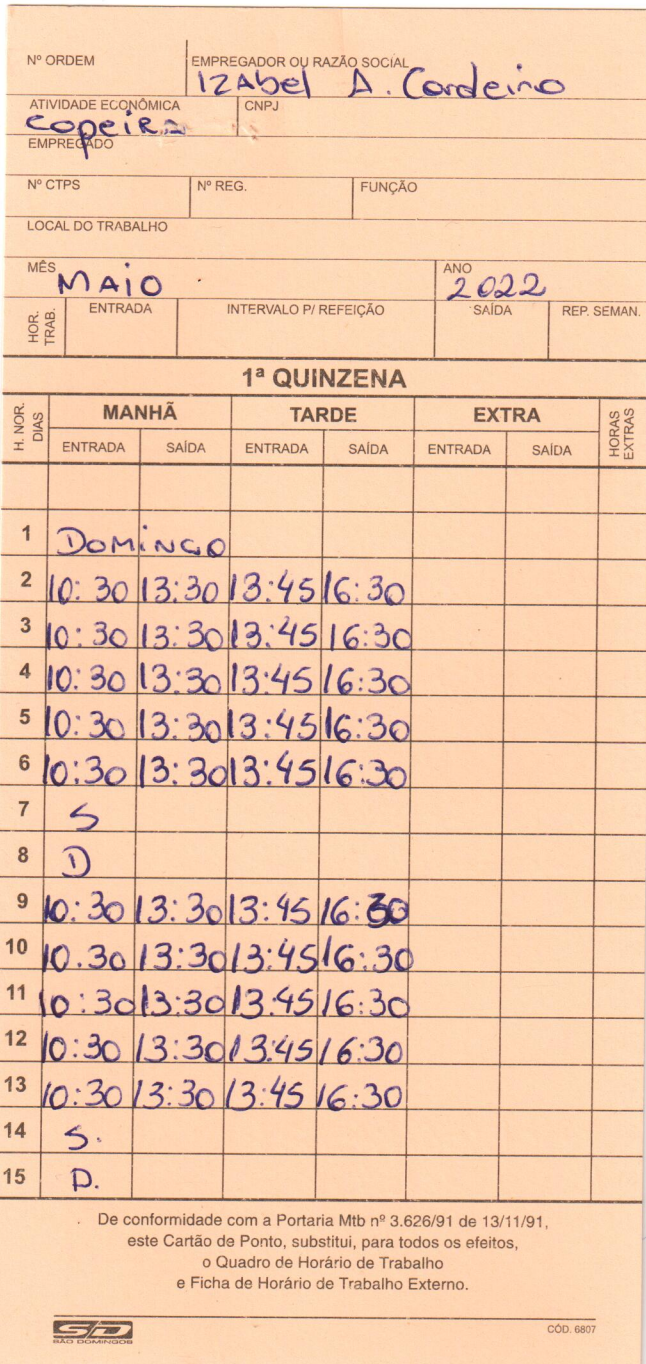 Nº ORDEM EMPREGADOR OU RAZÃO SOCIAL
IZAbel A. Cordeiro
ATIVIDADE ECONÔMICA CNPJ
COPEIRA
EMPREGADO
Nº CTPS Nº REG. FUNÇÃO
LOCAL DO TRABALHO
MÊS MAIO ANO 2022
HOR. TRAB. ENTRADA INTERVALO P/ REFEIÇÃO SAÍDA REP. SEMAN.
1ª QUINZENA
H. NOR. DIAS MANHÃ TARDE EXTRA HORAS EXTRAS
ENTRADA SAÍDA ENTRADA SAÍDA ENTRADA SAÍDA
1 DOMINGO
2 10:30 13:30 13:45 16:30
3 10:30 13:30 13:45 16:30
4 10:30 13:30 13:45 16:30
5 10:30 13:30 13:45 16:30
6 10:30 13:30 13:45 16:30
7 S
8 D
9 10:30 13:30 13:45 16:30
10 10.30 13:30 13:45 16:30
11 10:30 13:30 13.45 16:30
12 10:30 13:30 13.45 16:30
13 10:30 13:30 13:45 16:30
14 S.
15 D.
De conformidade com a Portaria Mtb nº 3.626/91 de 13/11/91,
este Cartão de Ponto, substitui, para todos os efeitos,
o Quadro de Horário de Trabalho
e Ficha de Horário de Trabalho Externo.
SD
SÃO DOMINGOS
CÓD. 6807